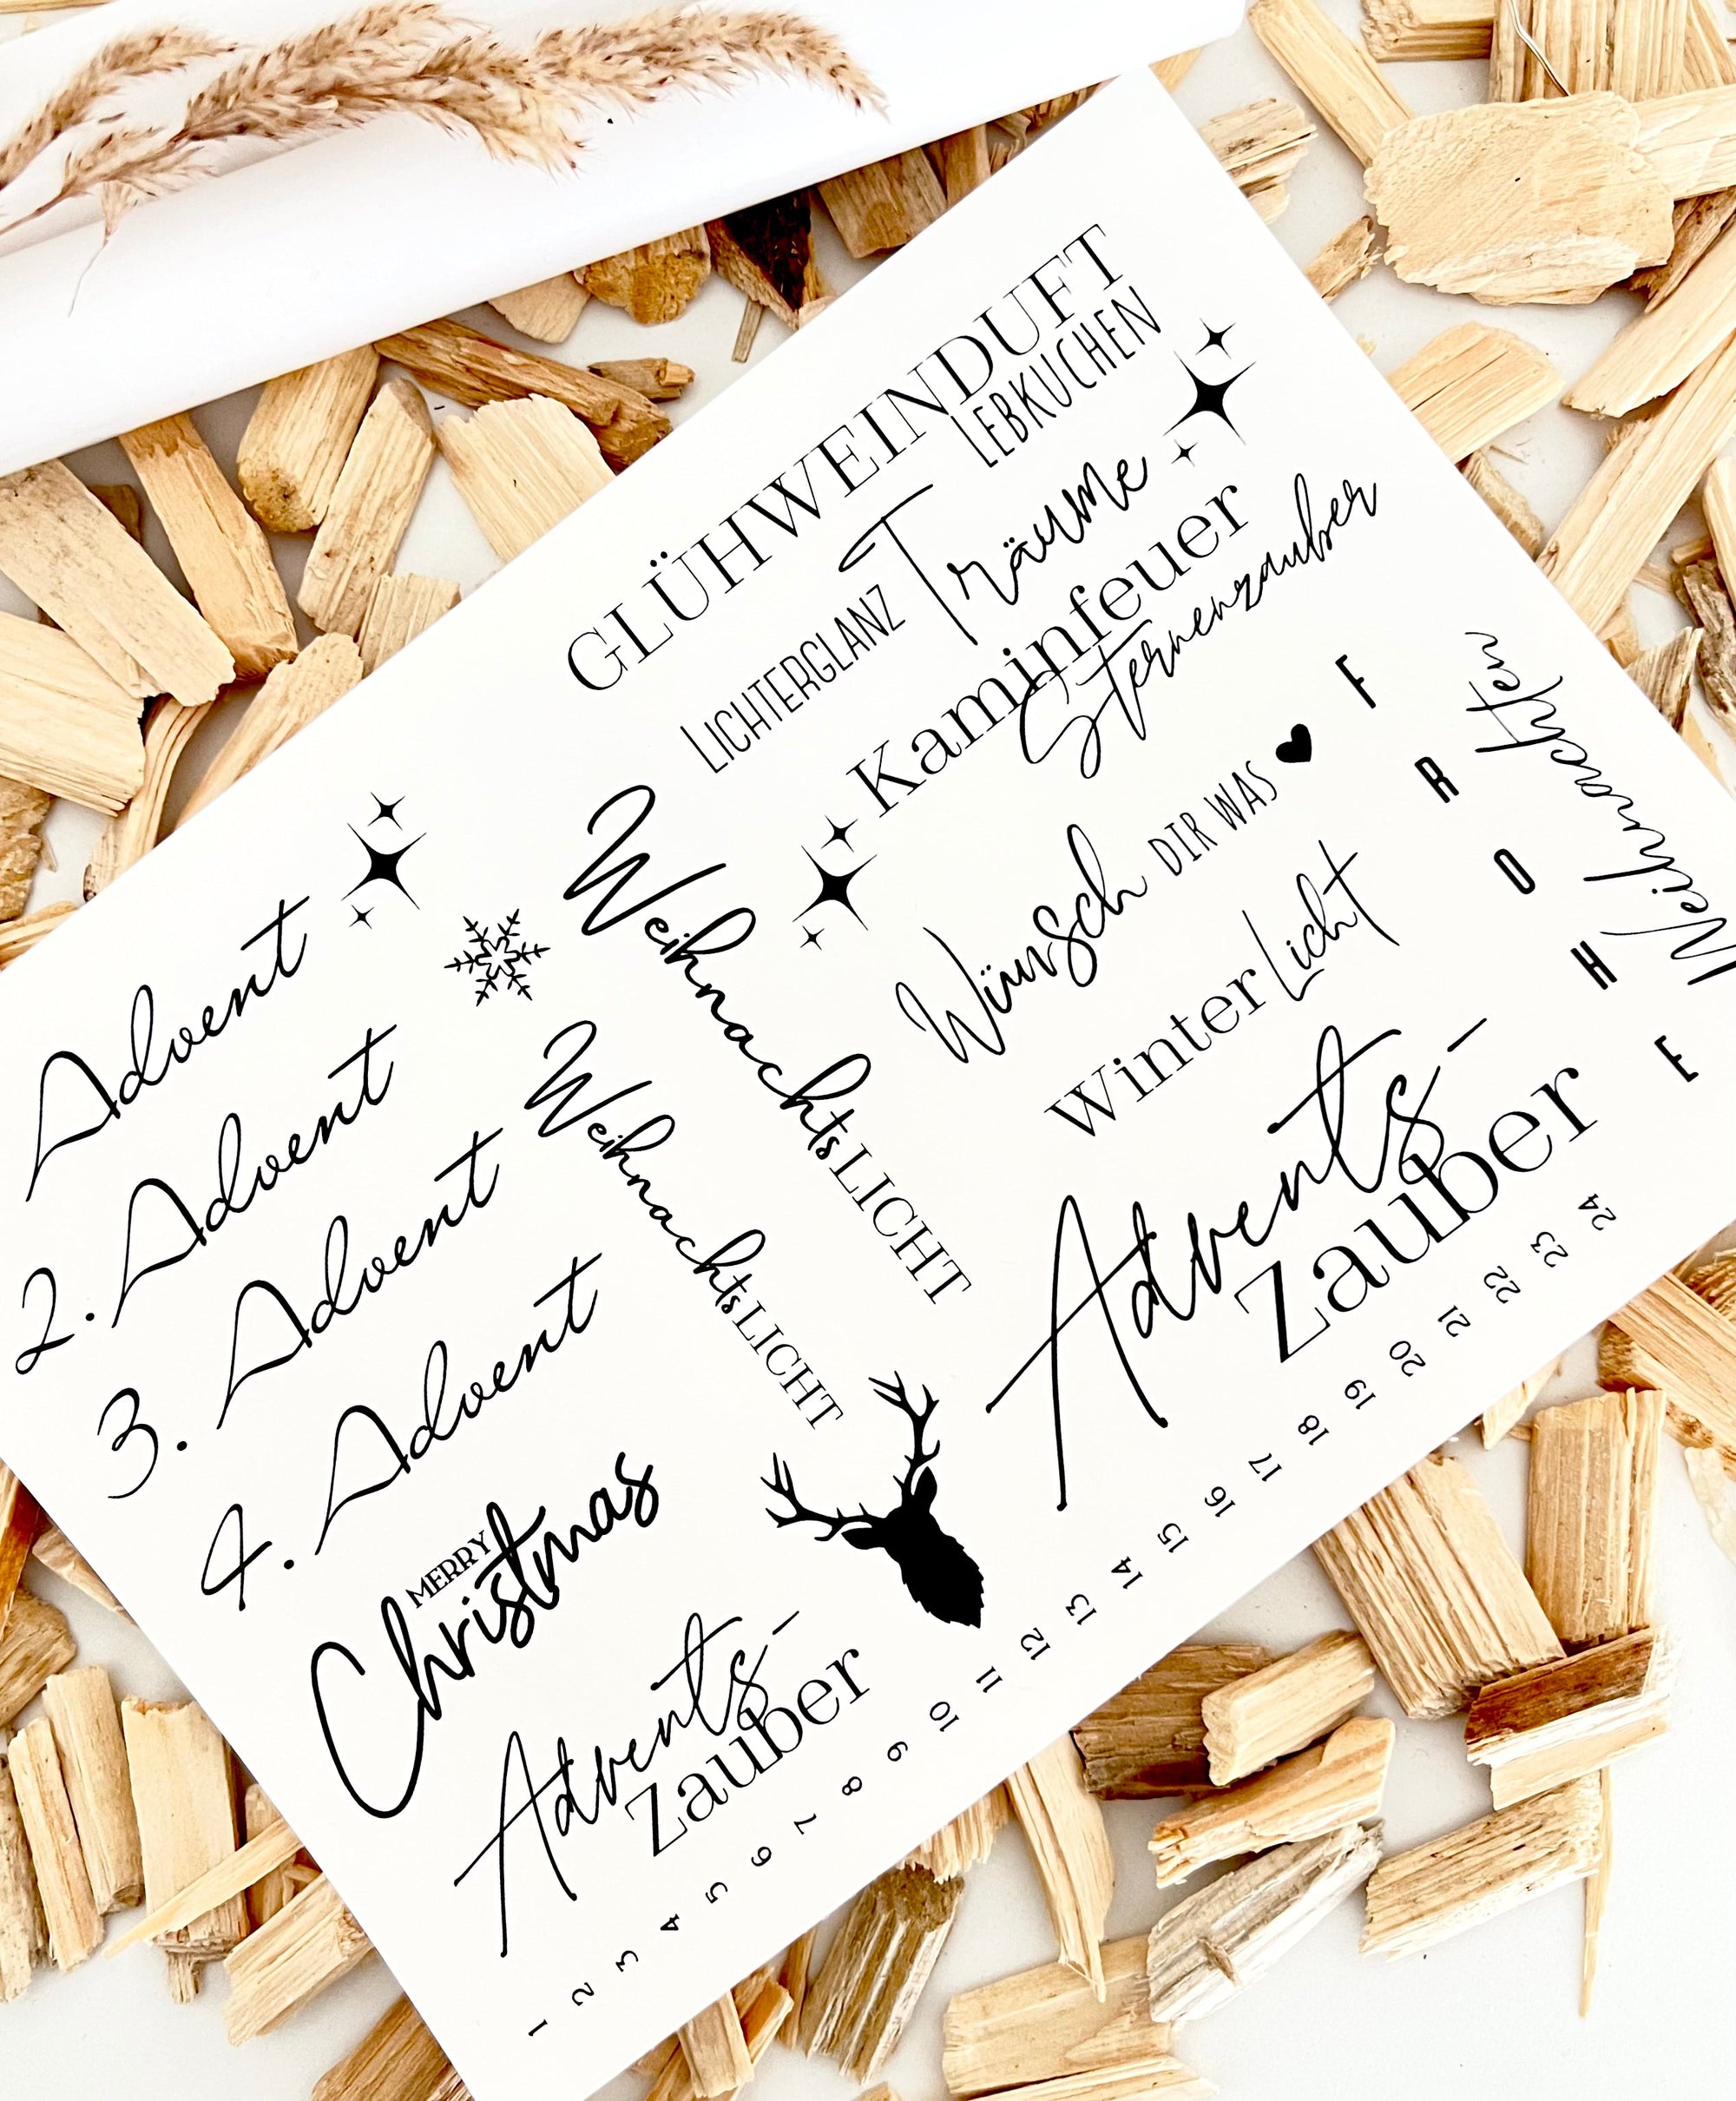 GLÜHWEINDUFT
LEBKUCHEN
LICHTERGLANZ Träume
Kaminfeuer
Sternenzauber
Wünsch DIR WAS
Winter Licht
Advents-
zauber
FROHE
Weihnachten
Advent
2. Advent
3. Advent
4. Advent
WeihnachtsLICHT
WeihnachtsLICHT
MERRY
Christmas
Advents-
zauber
1 2 3 4 5 6 7 8 9 10 11 12 13 14 15 16 17 18 19 20 21 22 23 24